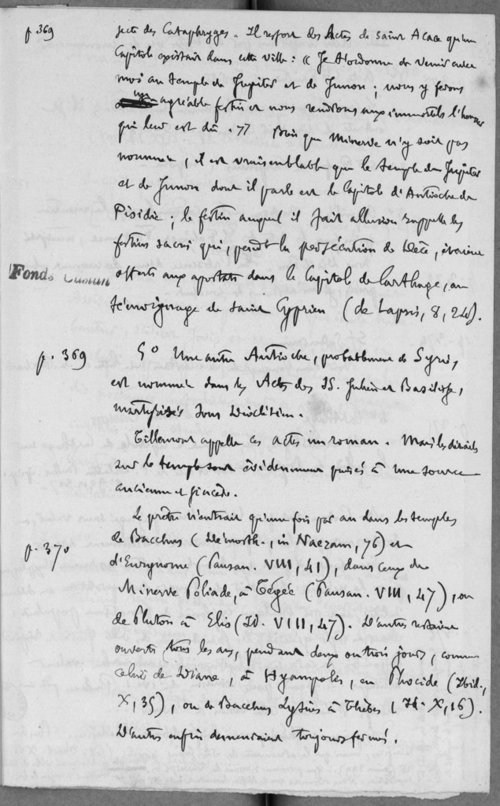 p. 369
secte des Cataphryges. Il ressort des Actes de saint Acace qu'un
Capitole existait dans cette ville : « Je t'ordonne de venir avec
moi au temple de Jupiter et de Junon ; nous y ferons
un agréable festin et nous rendrons aux immortels l'honneur
qui leur est dû. » Bien que Minerve n'y soit pas
nommée, il est vraisemblable que le temple de Jupiter
et de Junon dont il parle est le Capitole d'Antioche de
Pisidie ; le festin auquel il fait allusion rappelle les
festins sacrés qui, pendt la persécution de Dèce, étaient
offerts aux apostats dans le Capitole de Carthage, au
témoignage de saint Cyprien (de Lapsis, 8, 24).
Fonds Cumont
p. 369
5° Une autre Antioche, probablement de Syrie,
est nommée dans les Actes des SS. Julien et Basilisse,
martyrisés sous Dioclétien.
Tillemont appelle ces actes un roman. Mais les détails
sur le temple sont évidemment puisés à une source
ancienne et sincère.
Le prêtre n'entrait qu'une fois par an dans les temples
p. 370
de Bacchus (Démosth., in Naeram, 76) et
d'Eurynome (Pausan. VIII, 41), dans ceux de
Minerve Poliade, à Tégée (Pausan. VIII, 47), ou
de Pluton à Elis (Id. VIII, 47). D'autres restaient
ouverts tous les ans, pendant deux ou trois jours, comme
celui de Diane, à Hyampolis, en Phocide (Ibid.,
X, 35), ou de Bacchus Lysius à Thèbes (Id. X, 16).
D'autres enfin demeuraient toujours fermés.